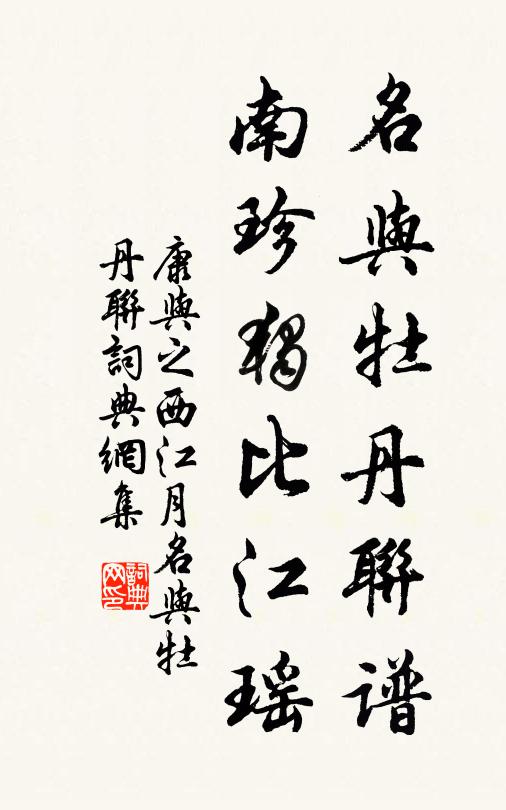 名與牡丹聯譜
南珍獨比江瑤
康與之西江月名與牡
丹聯詞典網集
詞典网印